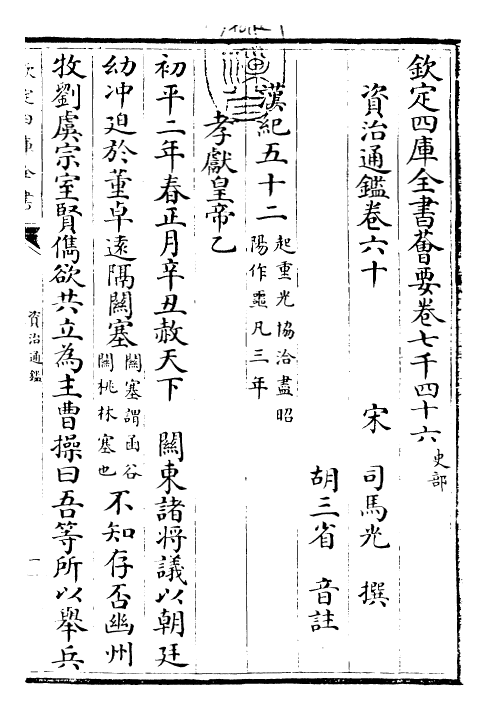 欽定四庫全書薈要卷七千四十六 史部
資治通鑑卷六十
宋 司馬光 撰
胡三省 音註
漢紀五十二 起重光協洽盡昭
陽作噩凡三年
孝獻皇帝乙
初平二年春正月辛丑赦天下 關東諸將議以朝廷
幼沖迫於董卓遠隔關塞 關塞謂函谷
關桃林塞也 不知存否幽州
牧劉虞宗室賢儁欲共立為主曹操曰吾等所以舉兵
欽定四庫全書
資治通鑑
一